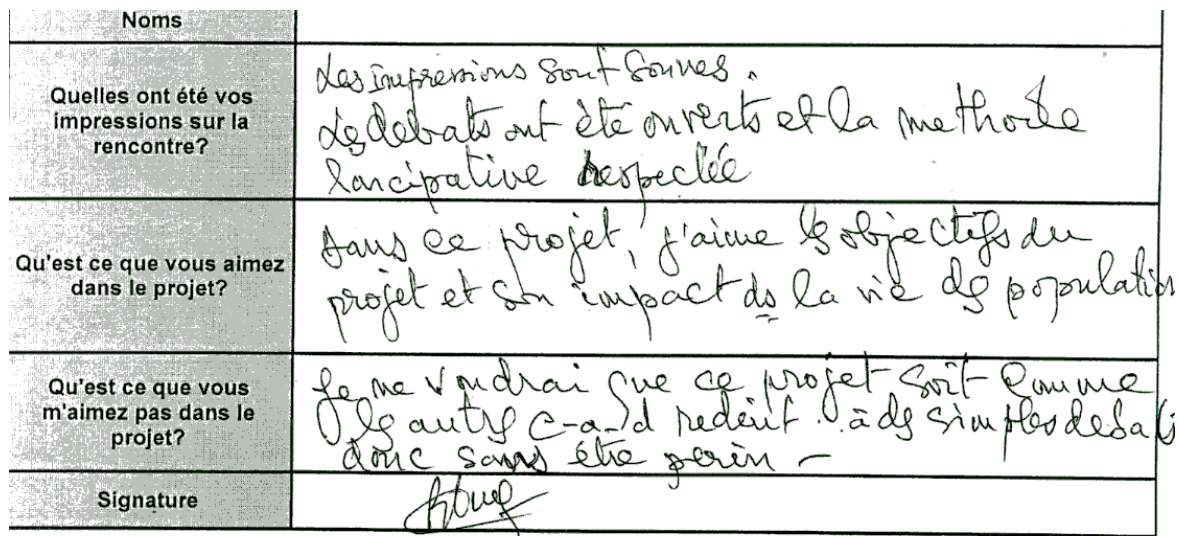 Noms
Quelles ont été vos
impressions sur la
rencontre?
Les impressions sont bonnes.
Les debats ont été ouverts et la methode
respectée
Qu'est ce que vous aimez
dans le projet?
Dans ce projet, j'aime les objectifs du
projet et son impact ds la vie des population
Qu'est ce que vous
m'aimez pas dans le
projet?
Je ne voudrai que ce projet soit comme
les autres c-a-d reduit à des simples debats
donc sans être
Signature